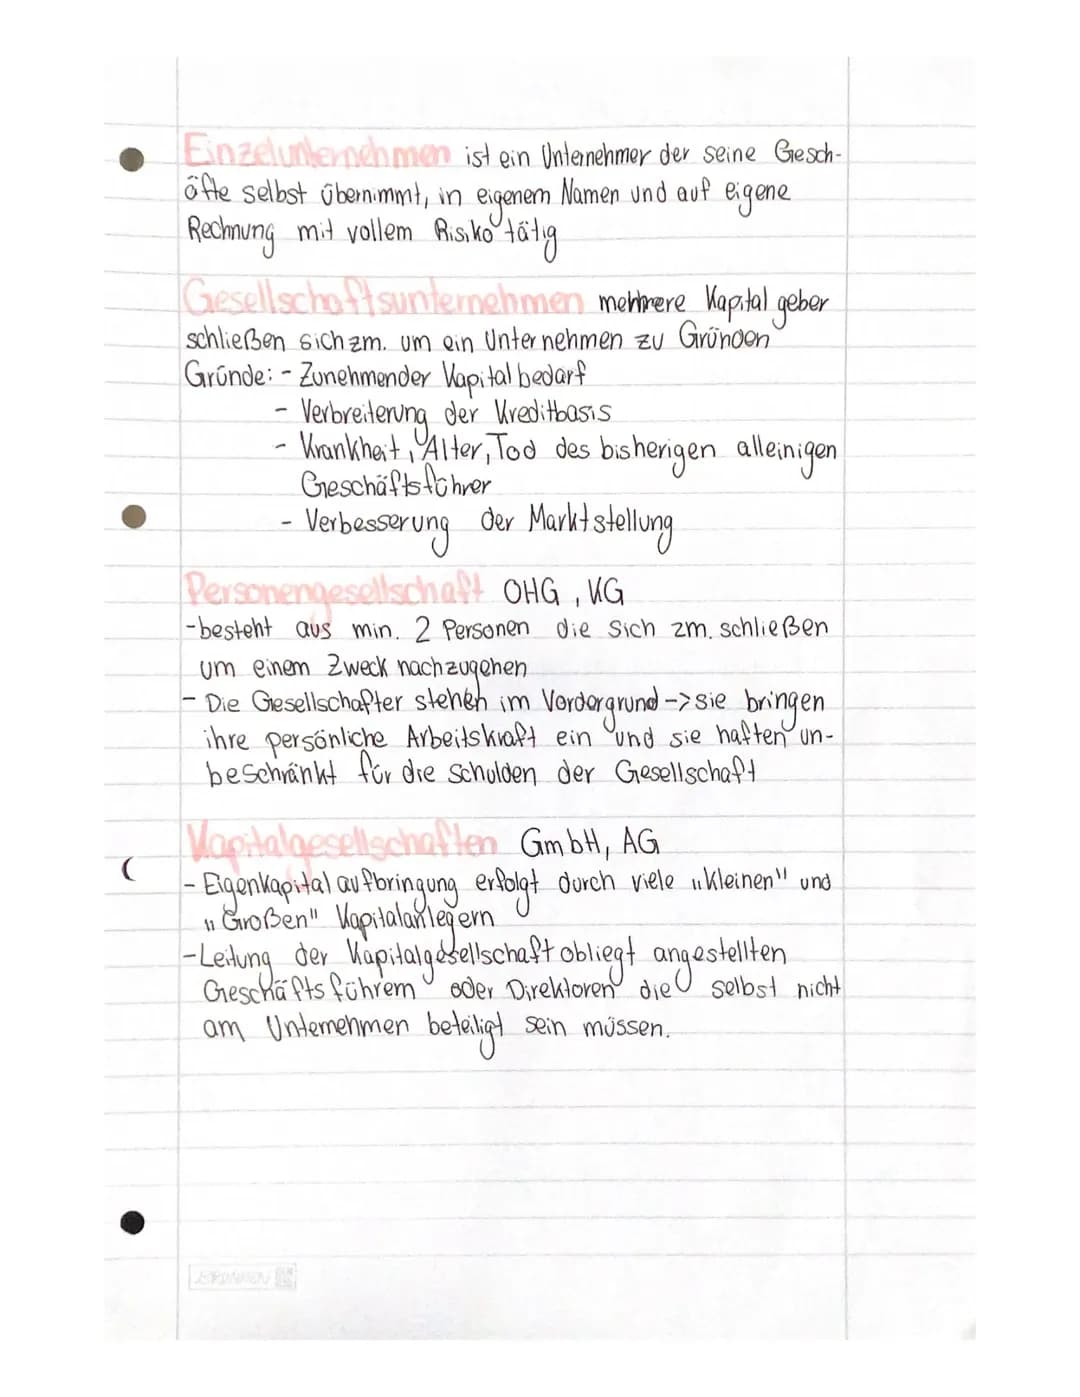 Einzelunternehmen ist ein Unternehmer der seine Gesch-
äfte selbst übernimmt, in eigenem Namen und auf eigene
Rechnung mit vollem Risiko tätig
Gesellschaftsunternehmen mehrere Kapital geber
schließen sich zm. um ein Unternehmen zu Gründen
Gründe: - Zunehmender Kapital bedarf
- Verbreiterung der Kreditbasis
- Krankheit, Alter, Tod des bisherigen alleinigen
Geschäftsführer
- Verbesserung der Marktstellung
Personengesellschaft OHG, KG
- besteht aus min. 2 Personen die sich zm. schließen
um einem Zweck nachzugehen
- Die Gesellschafter stehen im Vordergrund -> sie bringen
ihre persönliche Arbeitskraft ein und sie haften un-
beschränkt für die Schulden der Gesellschaft
Kapitalgesellschaften GmbH, AG
- Eigenkapital aufbringung erfolgt durch viele „Kleinen" und
„Großen" Kapitalanlegern
- Leitung der Kapitalgesellschaft obliegt angestellten
Geschäftsführern oder Direktoren die selbst nicht
am Unternehmen beteiligt sein müssen.